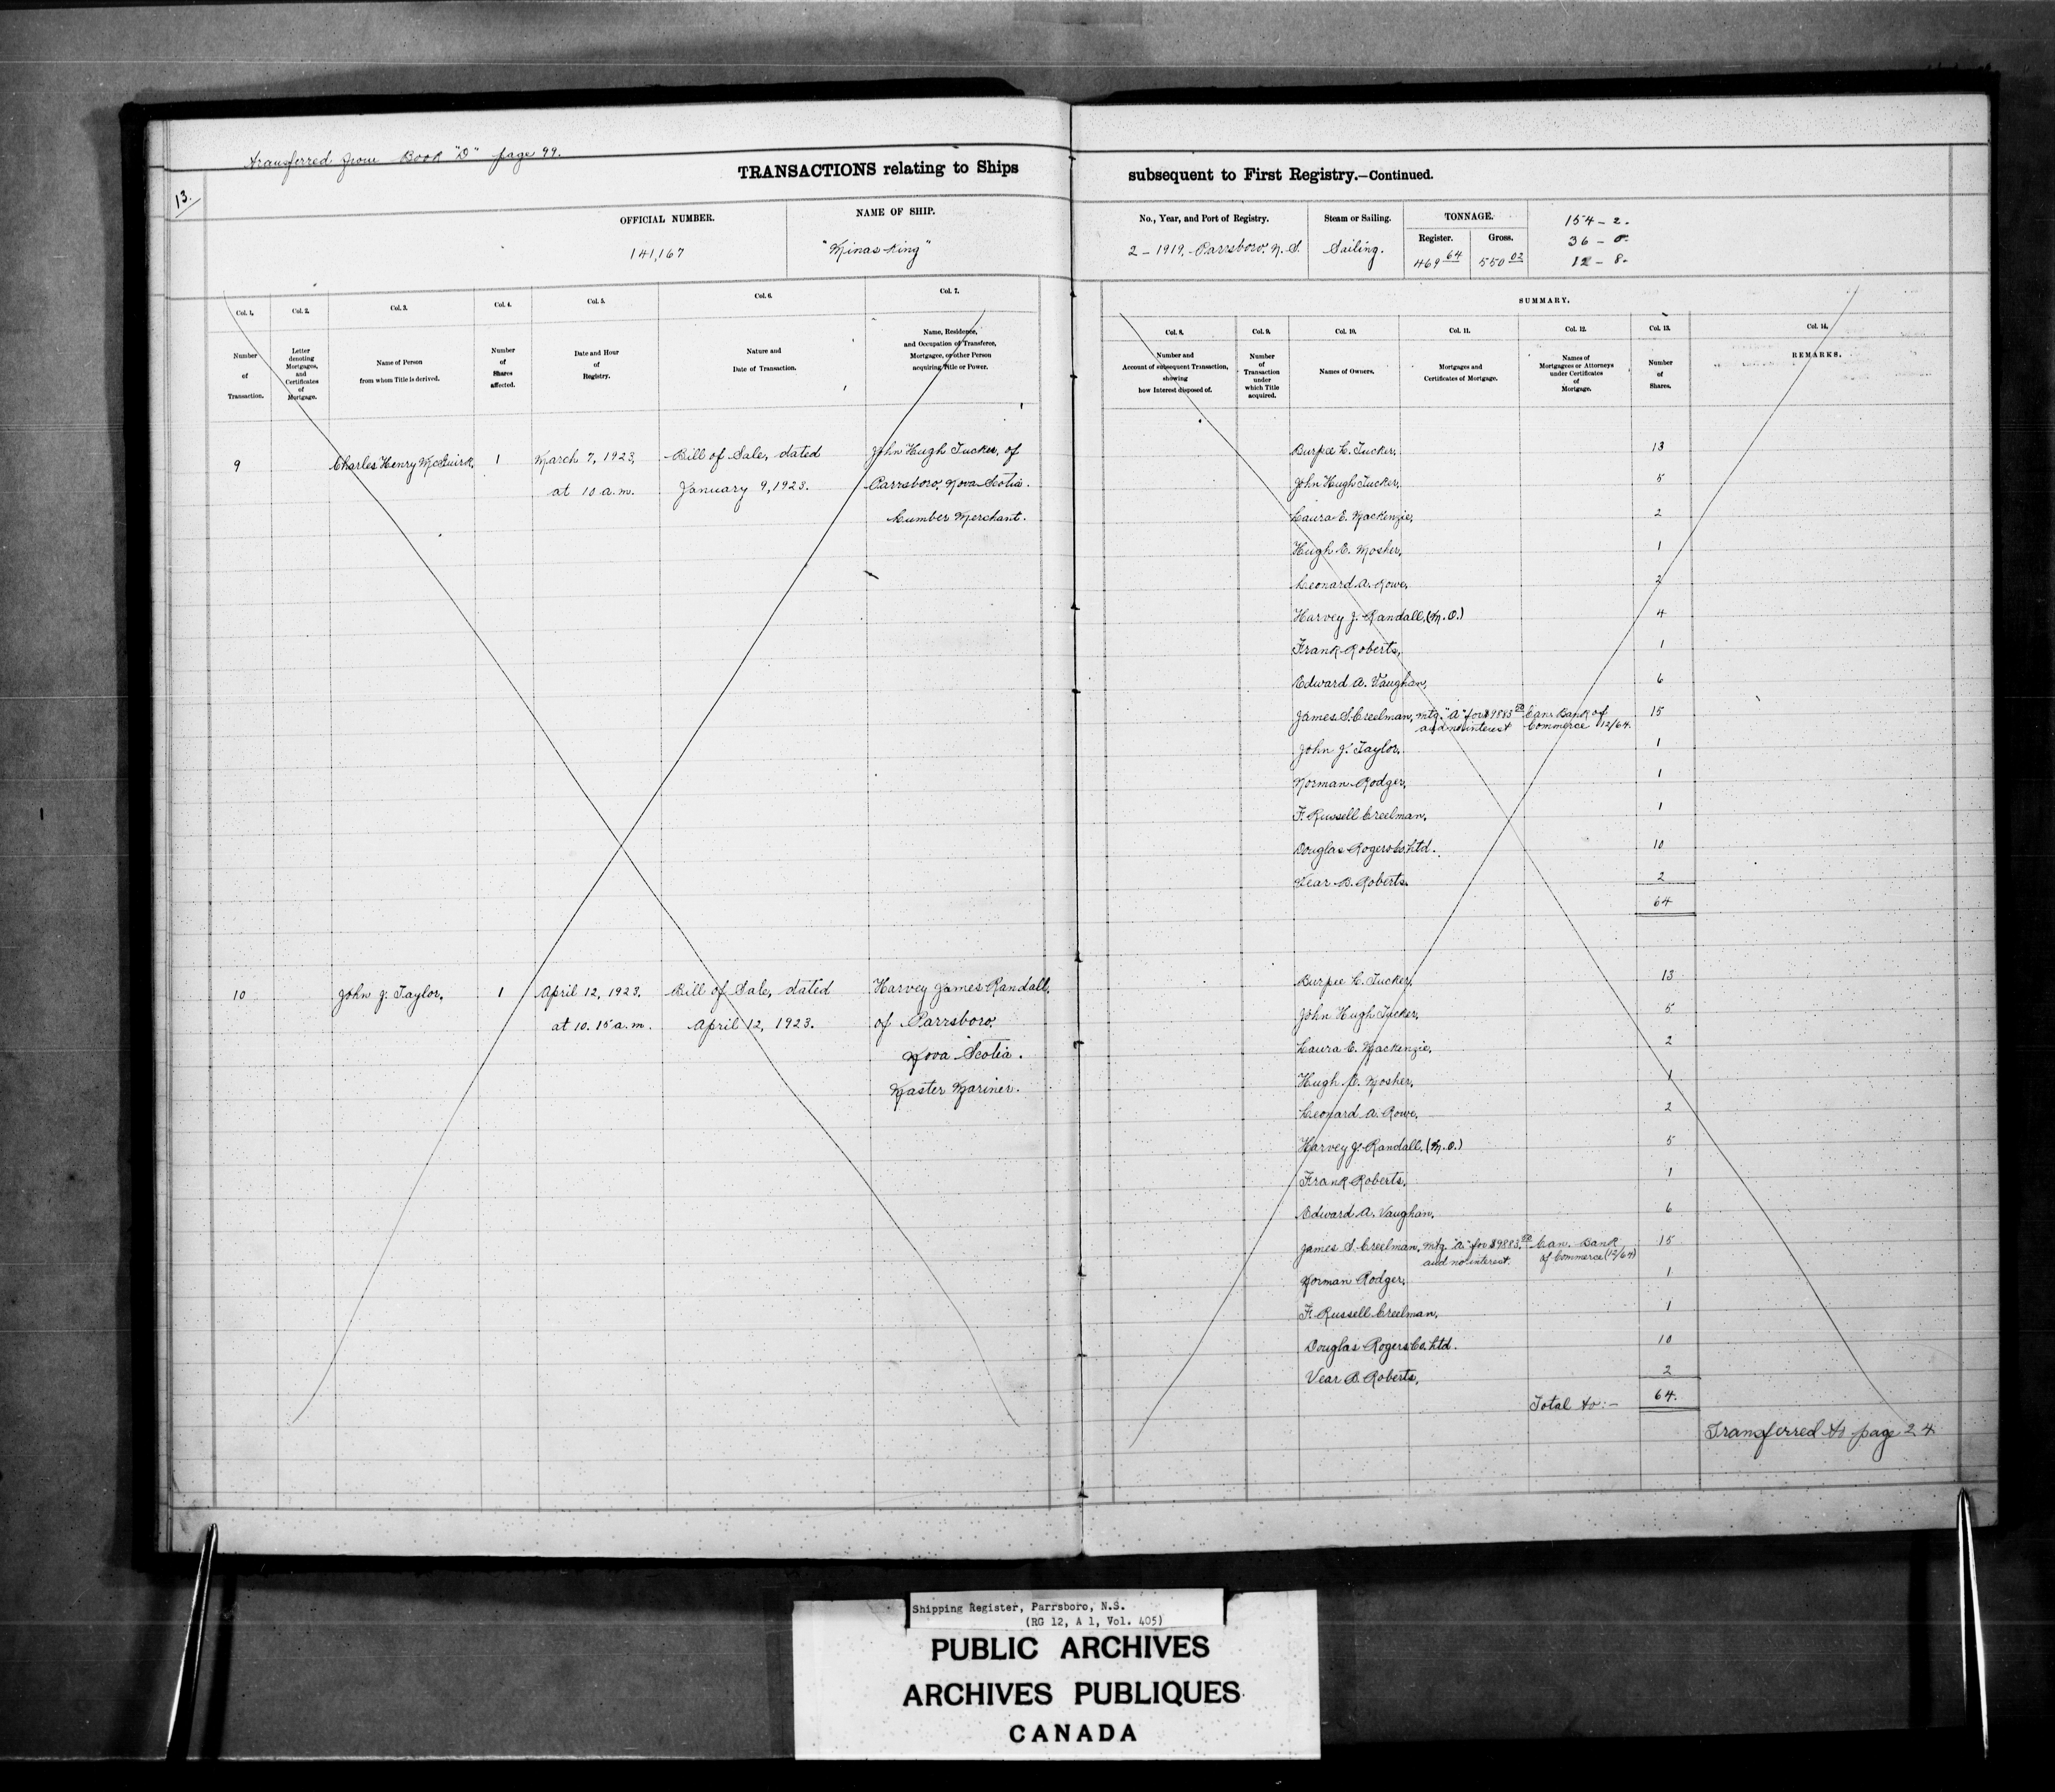 Transferred from Book "D" page 99.
13.
TRANSACTIONS relating to Ships subsequent to First Registry.—Continued.
OFFICIAL NUMBER.
141,167
NAME OF SHIP.
"Minas King"
No., Year, and Port of Registry.
2 - 1919, Parrsboro, N.S.
Steam or Sailing.
Sailing.
TONNAGE.
Register. Gross.
469 64 550 02
154 - 2.
36 - 0.
12 - 8.
SUMMARY.
Col. 1. Col. 2. Col. 3. Col. 4. Col. 5. Col. 6. Col. 7.
Number
of
Transaction.
Letter
denoting
Mortgages,
and
Certificates
of
Mortgage.
Name of Person
from whom Title is derived.
Number
of
Shares
affected.
Date and Hour
of
Registry.
Nature and
Date of Transaction.
Name, Residence,
and Occupation of Transferee,
Mortgagee, or other Person
acquiring Title or Power.
Col. 8. Col. 9. Col. 10. Col. 11. Col. 12. Col. 13. Col. 14.
Number and
Account of subsequent Transaction,
showing
how Interest disposed of.
Number
of
Transaction
under
which Title
acquired.
Names of Owners.
Mortgages and
Certificates of Mortgage.
Names of
Mortgagees or Attorneys
under Certificates
of
Mortgage.
Number
of
Shares.
REMARKS.
9 Charles Henry McGuirk, 1 March 7, 1923, Bill of Sale, dated John Hugh Tucker, of
at 10 a.m. January 9, 1923. Parrsboro, Nova Scotia.
Lumber Merchant.
Burpee L. Tucker, 13
John Hugh Tucker, 5
Laura E. Mackenzie, 2
Hugh E. Mosher, 1
Leonard A. Rowe, 2
Harvey J. Randall, (M.O.) 4
Frank Roberts, 1
Edward A. Vaughan, 6
James S. Creelman, mtg. "A" for $9883 Can. Bank of 15
and no interest Commerce 12/64.
John J. Taylor, 1
Norman Rodger, 1
F. Russell Creelman, 1
Douglas Rogers Co. Ltd. 10
Vear B. Roberts. 2
64
10 John J. Taylor, 1 April 12, 1923. Bill of Sale, dated Harvey James Randall,
at 10.15 a.m. April 12, 1923. of Parrsboro,
Nova Scotia.
Master Mariner.
Burpee L. Tucker, 13
John Hugh Tucker, 5
Laura E. Mackenzie, 2
Hugh E. Mosher, 1
Leonard A. Rowe, 2
Harvey J. Randall, (M.O.) 5
Frank Roberts, 1
Edward A. Vaughan, 6
James S. Creelman, mtg. "A" for $9883. Can. Bank 15
and no interest. of Commerce (12/64)
Norman Rodger, 1
F. Russell Creelman, 1
Douglas Rogers Co. Ltd. 10
Vear B. Roberts, 2
Total to:- 64.
Transferred to page 24
Shipping Register, Parrsboro, N.S.
(RG 12, A 1, Vol. 405)
PUBLIC ARCHIVES
ARCHIVES PUBLIQUES
CANADA